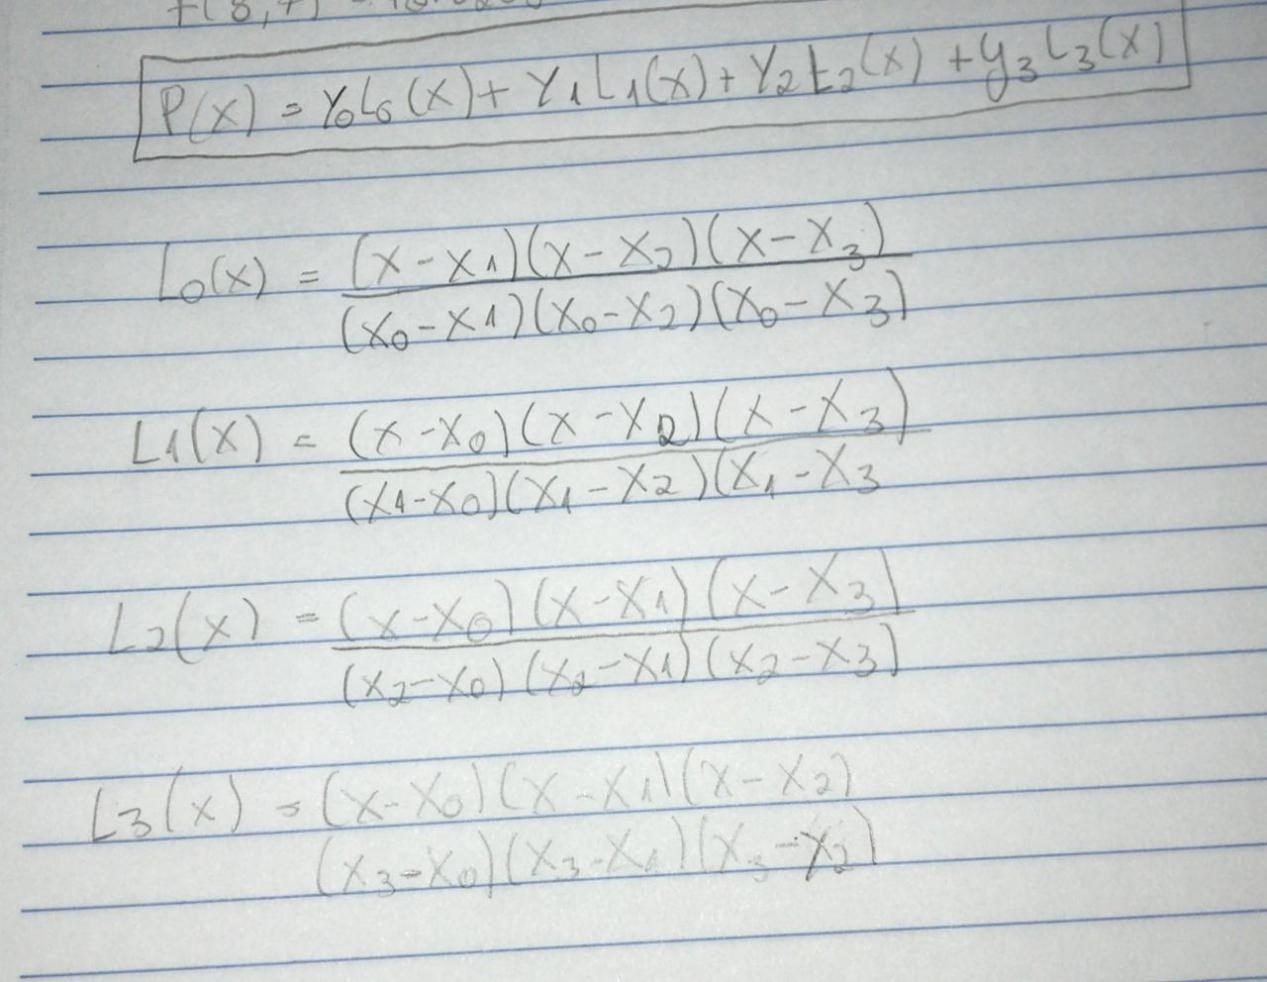 f(8,
P(x) = Y₀L₀(x) + Y₁L₁(x) + Y₂L₂(x) + y₃L₃(x)
L₀(x) = (x - x₁)(x - x₂)(x - x₃)
(x₀ - x₁)(x₀ - x₂)(x₀ - x₃)
L₁(x) = (x - x₀)(x - x₂)(x - x₃)
(x₁ - x₀)(x₁ - x₂)(x₁ - x₃
L₂(x) = (x - x₀)(x - x₁)(x - x₃)
(x₂ - x₀)(x₂ - x₁)(x₂ - x₃)
L₃(x) = (x - x₀)(x - x₁)(x - x₂)
(x₃ - x₀)(x₃ - x₁)(x₃ - x₂)